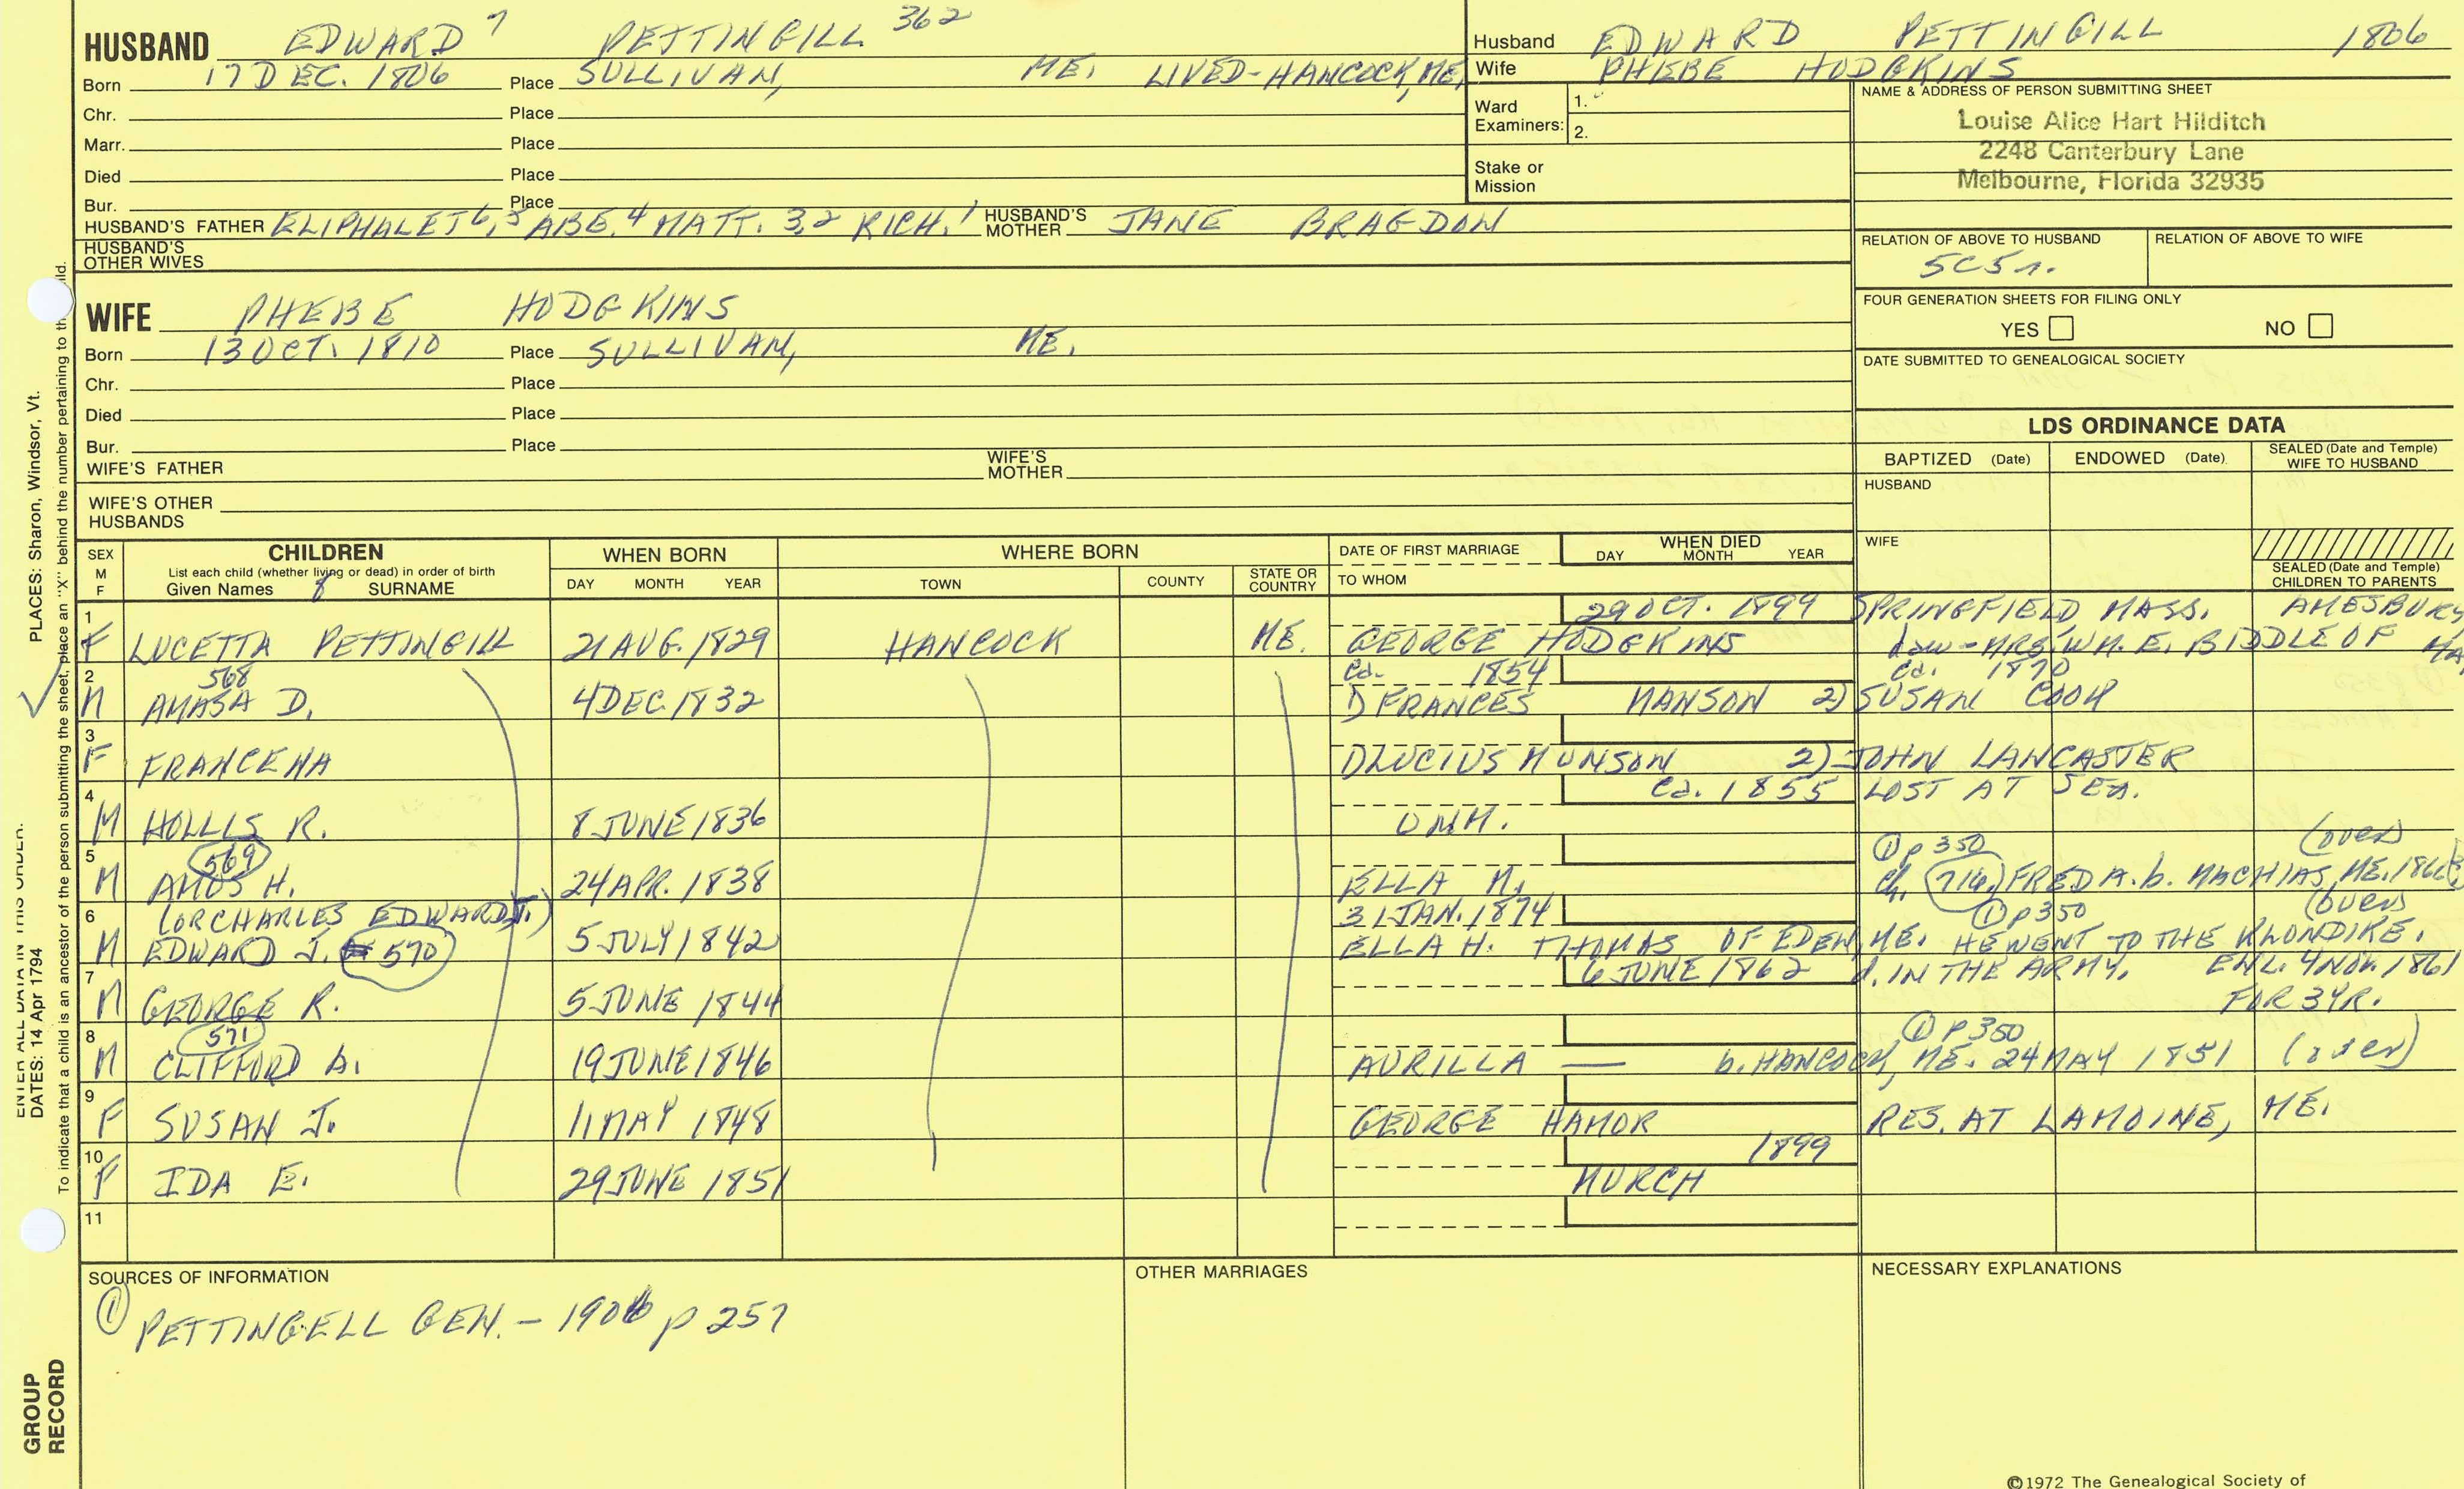 HUSBAND EDWARD 7 PETTINGILL 362
Born 17 DEC. 1806 Place SULLIVAN, ME. LIVED-HANCOCK, ME,
Chr. Place
Marr. Place
Died Place
Bur. Place
HUSBAND'S FATHER ELIPHALET 6, 5 ABE. 4 MATT. 3,2 RICH. 1 HUSBAND'S MOTHER JANE BRAGDON
HUSBAND'S OTHER WIVES
Husband EDWARD PETTINGILL 1806
Wife PHEBE HODGKINS
Ward Examiners: 1.
2.
Stake or Mission
NAME & ADDRESS OF PERSON SUBMITTING SHEET
Louise Alice Hart Hilditch
2248 Canterbury Lane
Melbourne, Florida 32935
RELATION OF ABOVE TO HUSBAND RELATION OF ABOVE TO WIFE
5C5r.
FOUR GENERATION SHEETS FOR FILING ONLY
YES NO
DATE SUBMITTED TO GENEALOGICAL SOCIETY
WIFE PHEBE HODGKINS
Born 13 OCT. 1810 Place SULLIVAN, ME.
Chr. Place
Died Place
Bur. Place
WIFE'S FATHER WIFE'S MOTHER
WIFE'S OTHER HUSBANDS
LDS ORDINANCE DATA
BAPTIZED (Date) ENDOWED (Date) SEALED (Date and Temple) WIFE TO HUSBAND
HUSBAND
WIFE
SEALED (Date and Temple) CHILDREN TO PARENTS
SEX M F CHILDREN WHEN BORN WHERE BORN DATE OF FIRST MARRIAGE WHEN DIED
List each child (whether living or dead) in order of birth
Given Names 8 SURNAME DAY MONTH YEAR TOWN COUNTY STATE OR COUNTRY TO WHOM DAY MONTH YEAR
1 29 OCT. 1899 SPRINGFIELD, MASS. AMESBURY
F LUCETTA PETTINGILL 21 AUG. 1829 HANCOCK ME. GEORGE HODGKINS daw - MRS. WM. E. BIDDLE OF MA
2 568 ca. 1854 ca. 1870
M AMASA D. 4 DEC. 1832 1) FRANCES MANSON 2) SUSAN COOK
3
F FRANCENA 1) LUCIUS MUNSON 2) JOHN LANCASTER
4 ca. 1855 LOST AT SEA.
M HOLLIS R. 8 JUNE 1836 UNM.
5 569 ① p 350 (over)
M AMOS H. 24 APR. 1838 ELLA M. ch. 716) FRED A. b. MACHIAS, ME.
6 (OR CHARLES EDWARD J.) 31 JAN. 1874 ① p 350 (over)
M EDWARD J. 570 5 JULY 1842 ELLA H. THOMAS OF EDEN, ME. HE WENT TO THE KLONDIKE.
7 6 JUNE 1862 d. IN THE ARMY. ENL. 4 NOV. 1861
M GEORGE R. 5 JUNE 1844 FOR 3 YR.
8 571 ① P 350
M CLIFFORD A. 19 JUNE 1846 AURILLA — b. HANCOCK, ME. 24 MAY 1851 (over)
9
F SUSAN J. 11 MAY 1848 GEORGE HAMOR RES. AT LAMOINE, ME.
10 1899
F IDA E. 29 JUNE 1851 MURCH
11
SOURCES OF INFORMATION OTHER MARRIAGES NECESSARY EXPLANATIONS
① PETTINGELL GEN. - 1906 p 257
©1972 The Genealogical Society of
ENTER ALL DATA IN THIS ORDER:
DATES: 14 Apr 1794 PLACES: Sharon, Windsor, Vt.
To indicate that a child is an ancestor of the person submitting the sheet, place an "X" behind the number pertaining to th ild.
GROUP RECORD